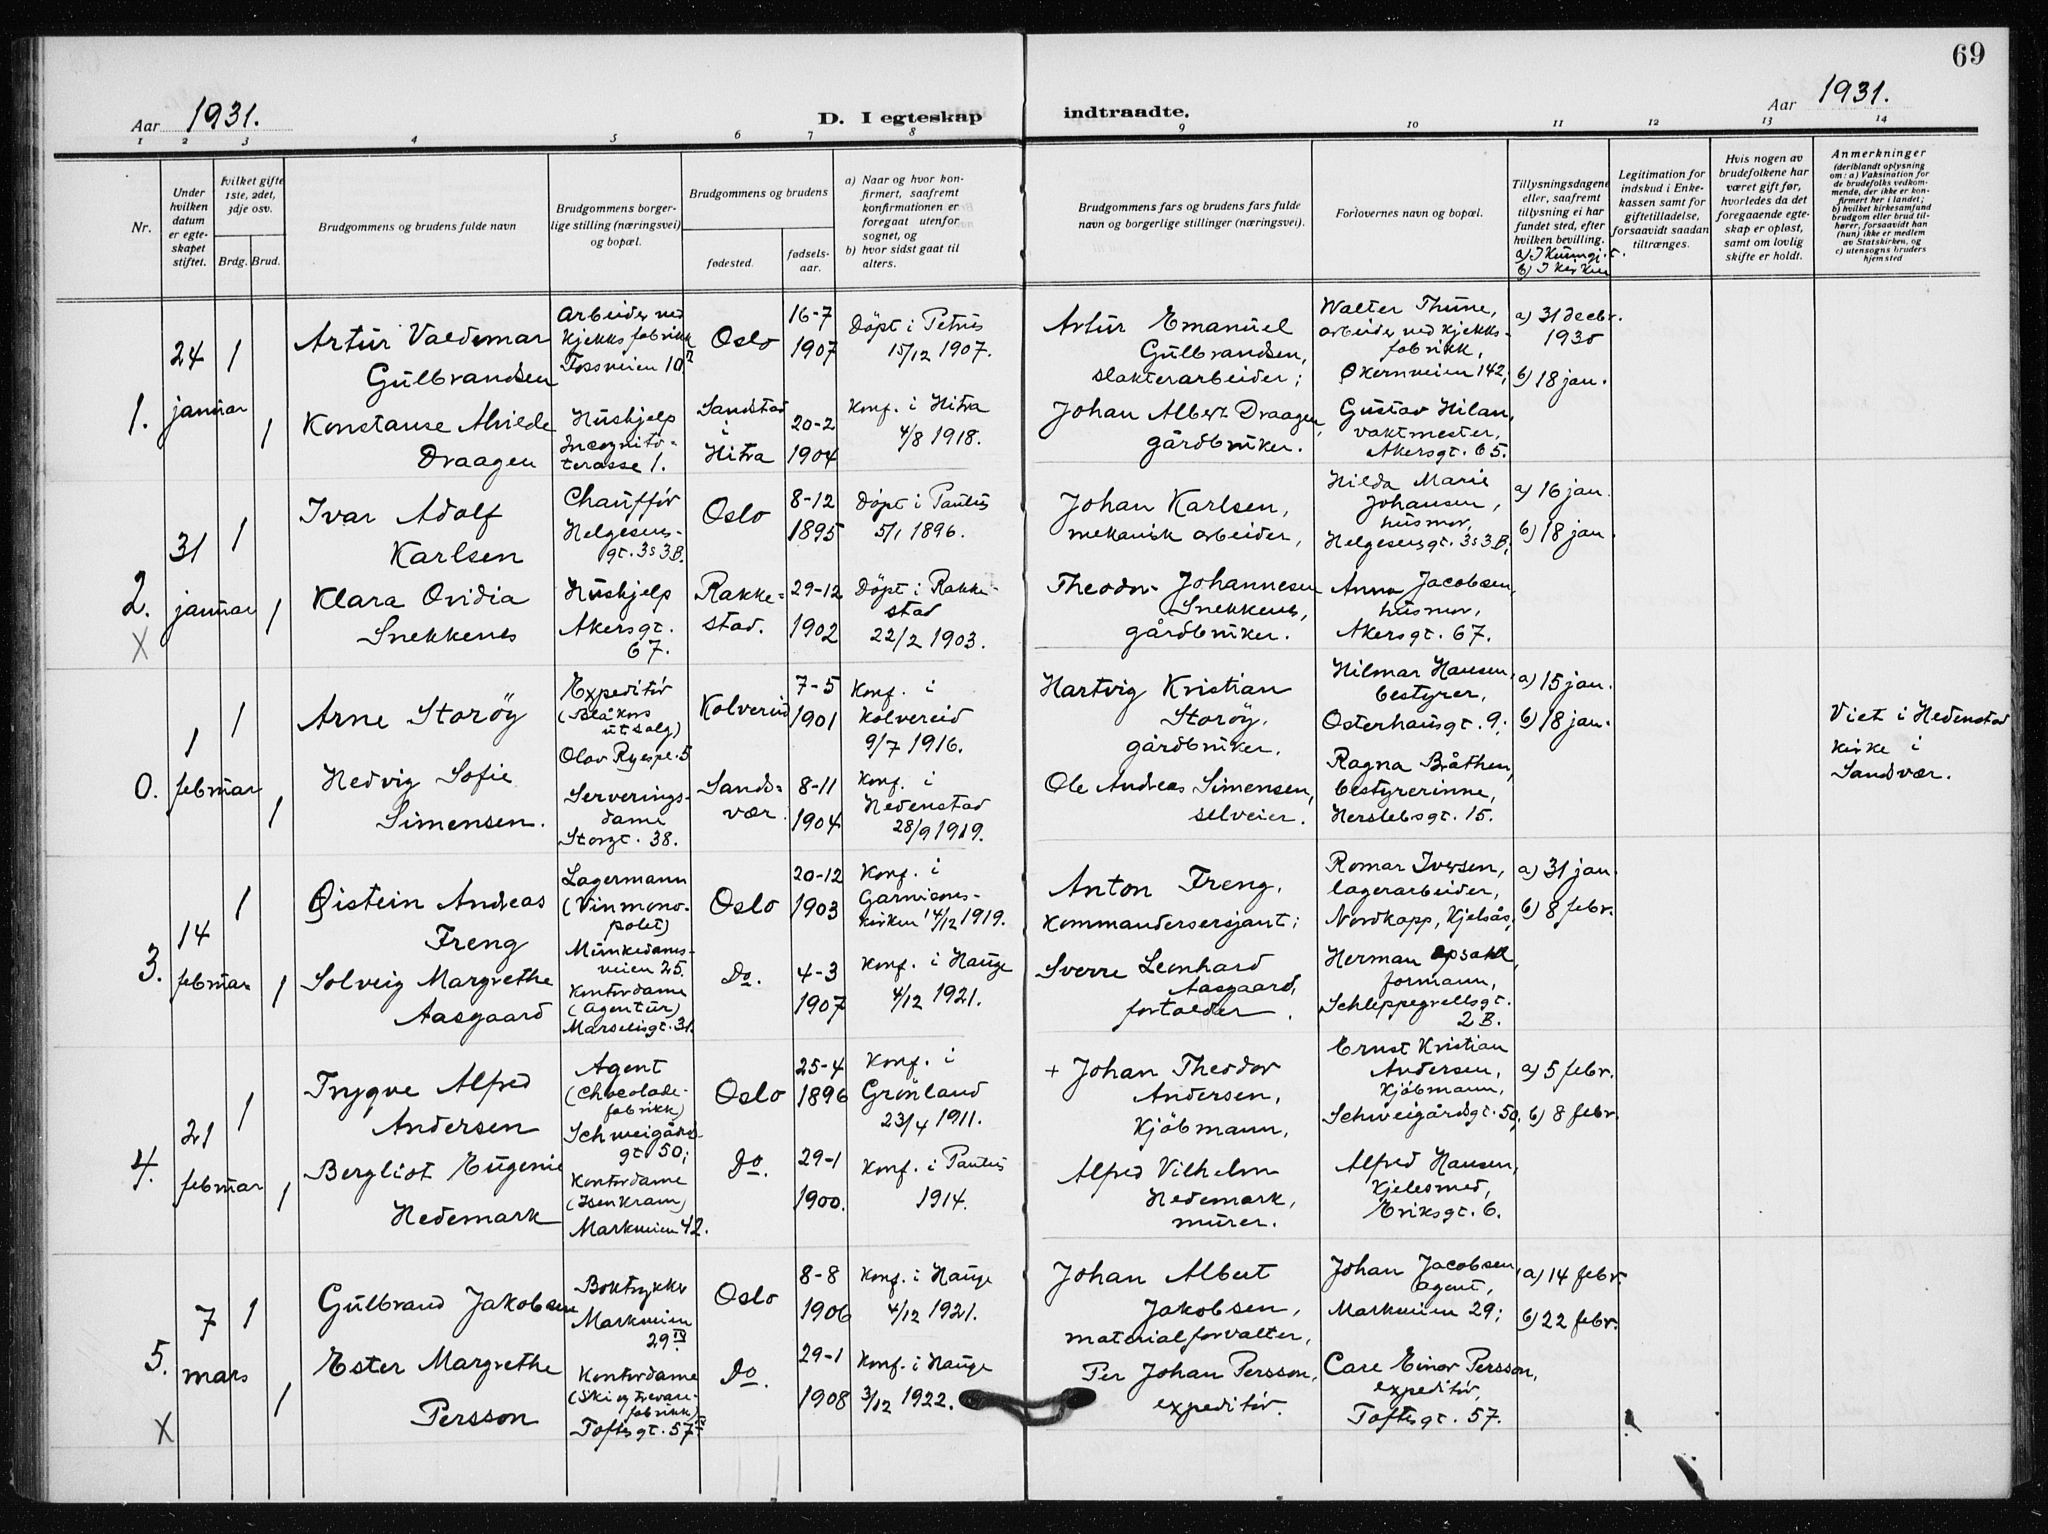 69
Aar 1931.
D. I egteskap indtraadte.
Aar 1931.
1 2 3 4 5 6 7 8 9 10 11 12 13 14
Nr.
Under hvilken datum er egteskapet stiftet.
Hvilket gifte 1ste, 2det, 3dje osv.
Brdg. Brud.
Brudgommens og brudens fulde navn
Brudgommens borgerlige stilling (næringsvei) og bopæl.
Brudgommens og brudens
fødested.
fødselsaar.
a) Naar og hvor konfirmert, saafremt konfirmationen er foregaat utenfor sognet, og
b) hvor sidst gaat til alters.
Brudgommens fars og brudens fars fulde navn og borgerlige stillinger (næringsvei).
Forlovernes navn og bopæl.
Tillysningsdagene eller, saafremt tillysning ei har fundet sted, efter hvilken bevilling.
b) I kirken
Legitimation for indskud i Enkekassen samt for giftetilladelse, forsaavidt saadan tiltrænges.
Hvis nogen av brudefolkene har været gift før, hvorledes da det foregaaende egteskap er opløst, samt om lovlig skifte er holdt.
Anmerkninger (deriblandt oplysning om: a) Vaksination for de brudefolks vedkommende, der ikke er konfirmert her i landet; b) hvilket kirkesamfund brudgom eller brud tilhører, forsaavidt han (hun) ikke er medlem av Statskirken, og c) utensogns bruders hjemsted
1.
24 januar
1
Artur Valdemar
Gulbrandsen
Arbeider ved
Kjeksfabrikk
Fossveien 10
Oslo
16-7
1907
Döpt i Petrus
15/12 1907.
Artur Emanuel
Gulbrandsen,
slakterarbeider;
Walter Thune,
arbeider ved kjeks-
fabrikk,
Økernveien 142;
a) 31 decbr.
1930
b) 18 jan.
1
Konstanse Alvilde
Draagen
Hushjelp
Incognito-
terasse 1.
Sandstad
i
Hitra
20-2
1904
Konf. i Hitra
4/8 1918.
Johan Albert Draagen,
gårdbruker.
Gustav Hilan,
vaktmester,
Akersgt. 65.
2.
X
31 januar
1
Ivar Adolf
Karlsen
Chaufför
Helgesens-
gt. 3s 3B.
Oslo
8-12
1895
Döpt i Paulus
5/1 1896.
Johan Karlsen,
mekanisk arbeider,
Hilda Marie
Johansen,
husmor,
Helgesensgt. 3s 3B;
a) 16 jan.
b) 18 jan.
1
Klara Ovidia
Snekkenes
Hushjelp
Akersgt.
67.
Rakke-
stad.
29-12
1902
Döpt i Rakke-
stad
22/2 1903.
Theodor Johannesen
Snekkenes,
gårdbruker.
Anna Jacobsen,
husmor,
Akersgt. 67.
0.
1 februar
1
Arne Storöy
Expeditör
(Blåkors
utsalg)
Olav Ryespl. 5
Kolvereid
7-5
1901
Konf. i
Kolvereid
9/7 1916.
Hartvig Kristian
Storöy,
gårdbruker.
Hilmar Hansen,
bestyrer,
Osterhausgt. 9;
a) 15 jan.
b) 18 jan.
Viet i Hedenstad
kirke i
Sandsvær.
1
Hedvig Sofie
Simensen.
Serverings-
dame
Storgt. 38.
Sands-
vær.
8-11
1904
Konf. i
Hedenstad
28/9 1919.
Ole Andreas Simensen,
selveier.
Ragna Bråthen,
bestyrerinne,
Herslebsgt. 15.
3.
14 februar
1
Øistein Andreas
Freng
Lagermann
(Vinmono-
polet)
Munkedams-
veien 25.
Oslo
20-12
1903
Konf. i
Garnisons-
kirken 14/12 1919.
Anton Freng,
kommandersersjant;
Romar Iversen,
lagerarbeider,
Nordkapp, Kjelsås;
a) 31 jan.
b) 8 febr.
1
Solveig Margrethe
Aasgaard
Kontordame
(Agentur)
Marselisgt. 31.
Do.
4-3
1907
Konf. i Hauge
4/12 1921.
Sverre Leonhard
Aasgaard,
fortolder.
Herman Opsahl,
formann,
Schleppegrellsgt.
2 B.
4.
21 februar
1
Trygve Alfred
Andersen
Agent
(Chocolade-
fabrikk)
Schweigårds-
gt 50;
Oslo
25-4
1896
Konf. i
Grönland
23/4 1911.
+ Johan Theodor
Andersen,
Kjöbmann,
Ernst Kristian
Andersen,
Kjöbmann,
Schweigårdsgt. 50;
a) 5 febr.
b) 8 febr.
1
Bergliot Eugenie
Hedemark
Kontordame
(Isenkram)
Markveien 42.
Do.
29-1
1900.
Konf. i Paulus
1914.
Alfred Vilhelm
Hedemark,
murer.
Alfred Hansen,
Kjelesmed,
Eriksgt. 6.
5.
X
7 mars
1
Gulbrand Jakobsen
Boktrykker
Markveien
29 IV
Oslo
8-8
1906
Konf. i Hauge
4/12 1921.
Johan Albert
Jakobsen,
materialforvalter,
Johan Jacobsen,
agent,
Markveien 29;
a) 14 febr.
b) 22 febr.
1
Ester Margrethe
Persson
Kontordame
(Ski og trevare-
fabrikk)
Toftesgt. 57
Do.
29-1
1908
Konf. i Hauge
3/12 1922.
Per Johan Persson,
expeditör.
Care Einar Persson,
expeditör,
Toftesgt. 57.